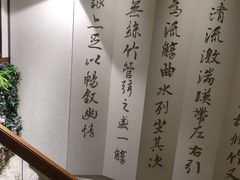 清流激湍映帶左右引
為流觴曲水列坐其次
無絲竹管弦之盛一觴
詠上足以暢敘幽情